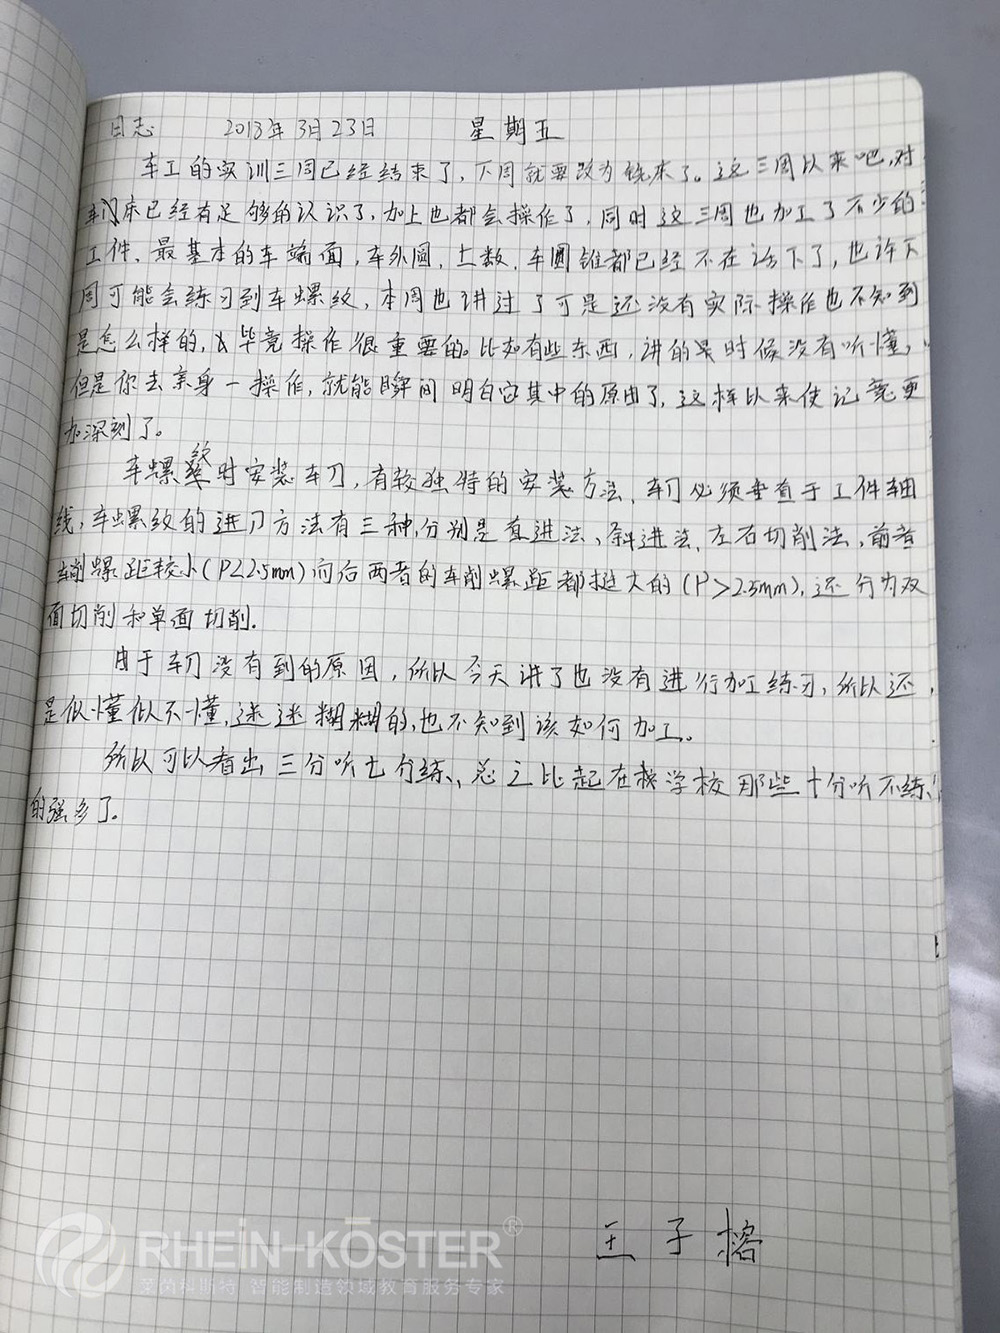 日志 2018年3月23日 星期五
车工的实训三周已经结束了，下周就要改为铣床了。这三周以来吧，对
车床已经有足够的认识了，加上也都会操作了，同时这三周也加工了不少的
工件，最基本的车端面，车外圆，上数，车圆锥都已经不在话下了，也许下
周可能会练习到车螺纹，本周也讲过了可是还没有实际操作也不知到
是怎么样的，毕竟操作很重要的。比如有些东西，讲的是时候没有听懂，
但是你去亲身一操作，就能瞬间明白它其中的原由了，这样以来使记忆更
加深刻了。
车螺纹时安装车刀，有较独特的安装方法，车刀必须垂直于工件轴
线，车螺纹的进刀方法有三种，分别是直进法、斜进法、左右切削法，前者
车削螺距较小(P<2.5mm)而后两者的车削螺距都挺大的(P>2.5mm)，还分为双
面切削和单面切削.
由于车刀没有到的原因，所以今天讲了也没有进行加工练习，所以还
是似懂似不懂，迷迷糊糊的，也不知到该如何加工。
所以可以看出三分听七分练，总之比起在学校那些十分听不练
的强多了。
王子榕
RHEIN-KÖSTER®
莱茵科斯特 智能制造领域教育服务专家